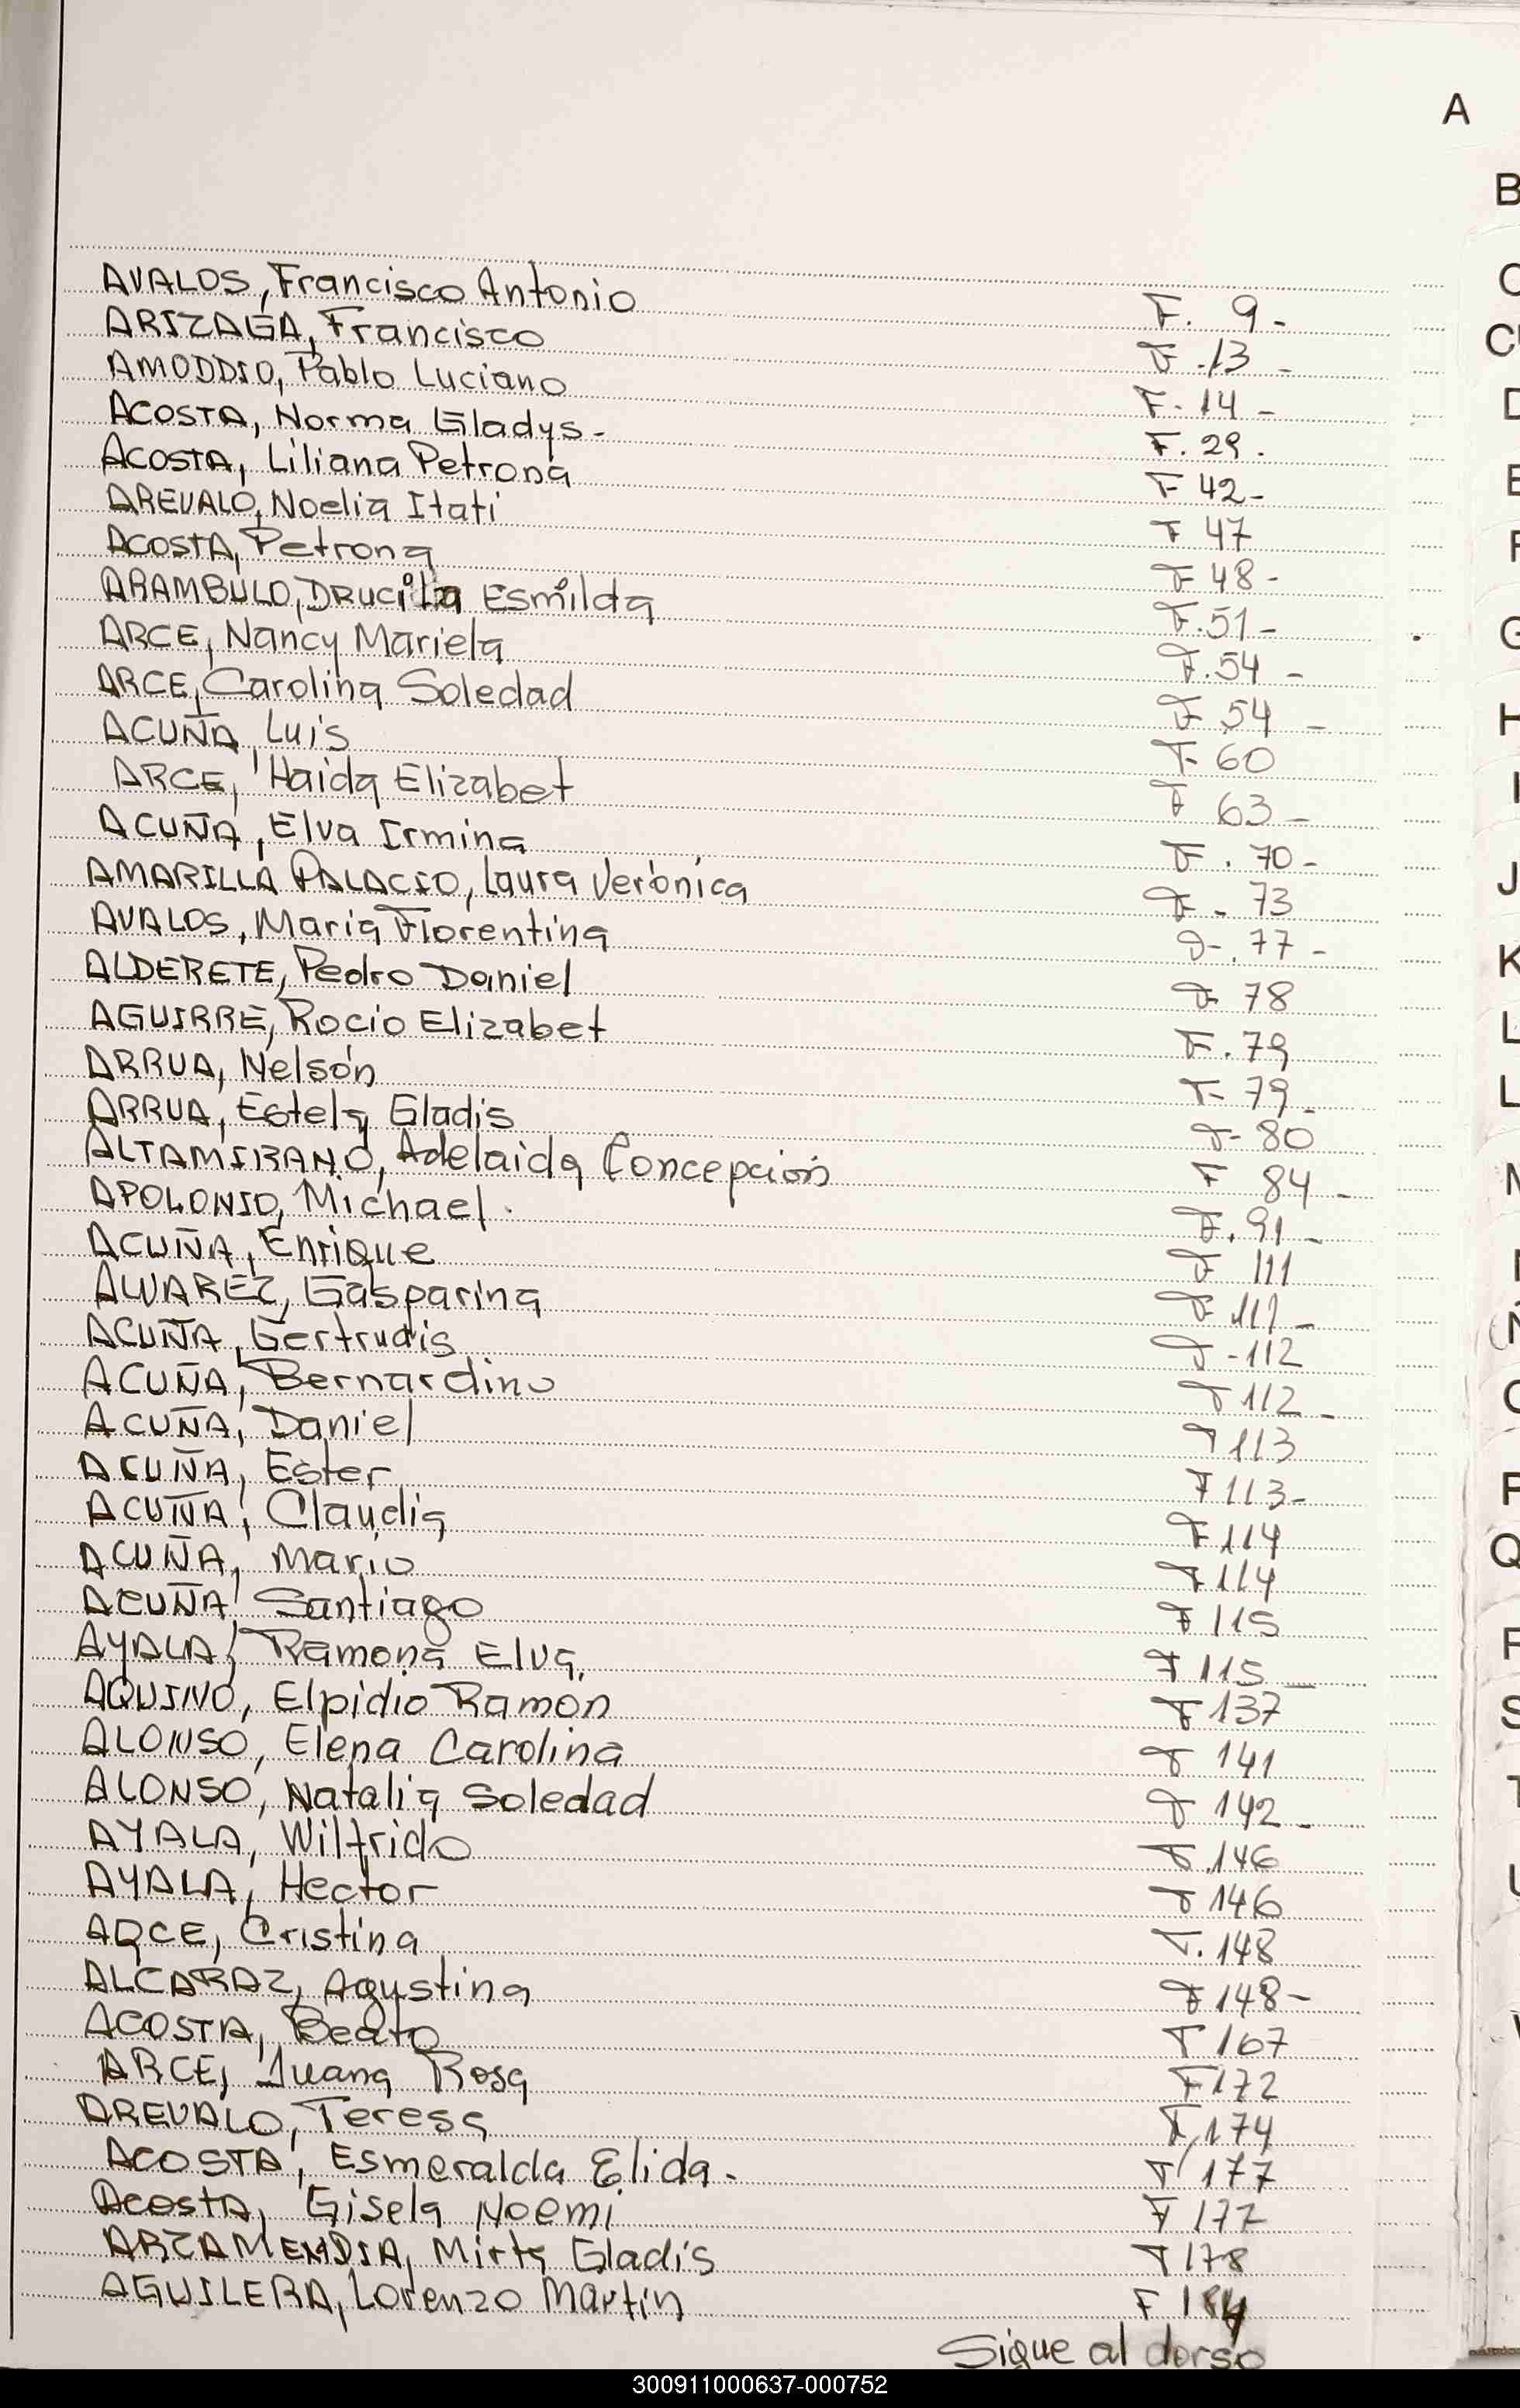 A
B
C
D
E
F
G
H
I
J
K
L
L
M
Ñ
O
P
Q
R
S
T
U
AVALOS, Francisco Antonio F. 9-
ARIZAGA, Francisco F. 13-
AMODDIO, Pablo Luciano F. 14-
ACOSTA, Norma Gladys- F. 29.
ACOSTA, Liliana Petrona F 42-
AREVALO, Noelia Itati F 47
ACOSTA, Petrona F 48-
ARAMBULO, DRUCilla Esmilda F. 51-
ARCE, Nancy Mariela F. 54-
ARCE, Carolina Soledad F 54-
ACUÑA, Luis F- 60
ARCE, Haida Elizabet F 63-
ACUÑA, Elva Irmina F. 70-
AMARILLA PALACIO, Laura Verónica F- 73
AVALOS, Maria Florentina F-. 77-
ALDERETE, Pedro Daniel F 78
AGUIRRE, Rocio Elizabet F. 79
ARRUA, Nelsón F- 79-
ARRUA, Estela Gladis F- 80
ALTAMIRANO, Adelaida Concepción F 84-
APOLONIO, Michael. F. 91-
ACUÑA, Enrique F 111
ALVAREZ, Gasparina F 111-
ACUÑA, Gertrudis F-112
ACUÑA, Bernardino F 112-
ACUÑA, Daniel F 113
ACUÑA, Ester F 113-
ACUÑA, Claudia F 114
ACUÑA, Mario F 114
ACUÑA, Santiago F 115
AYALA, Ramona Elva. F 115-
AQUINO, Elpidio Ramón F 137
ALONSO, Elena Carolina F 141
ALONSO, Natalia Soledad F 142-
AYALA, Wilfrido F. 146
AYALA, Hector F 146
ARCE, Cristina F. 148
ALCARAZ, Agustina F 148-
ACOSTA, Beato F 167
ARCE, Juana Rosa F 172
AREVALO, Teresa F, 174
ACOSTA, Esmeralda Elida- F 177
Acosta, Gisela Noemi F 177
ARZAMENDIA, Mirta Gladis F 178
AGUILERA, Lorenzo Martín F 184
Sigue al dorso
300911000637-000752